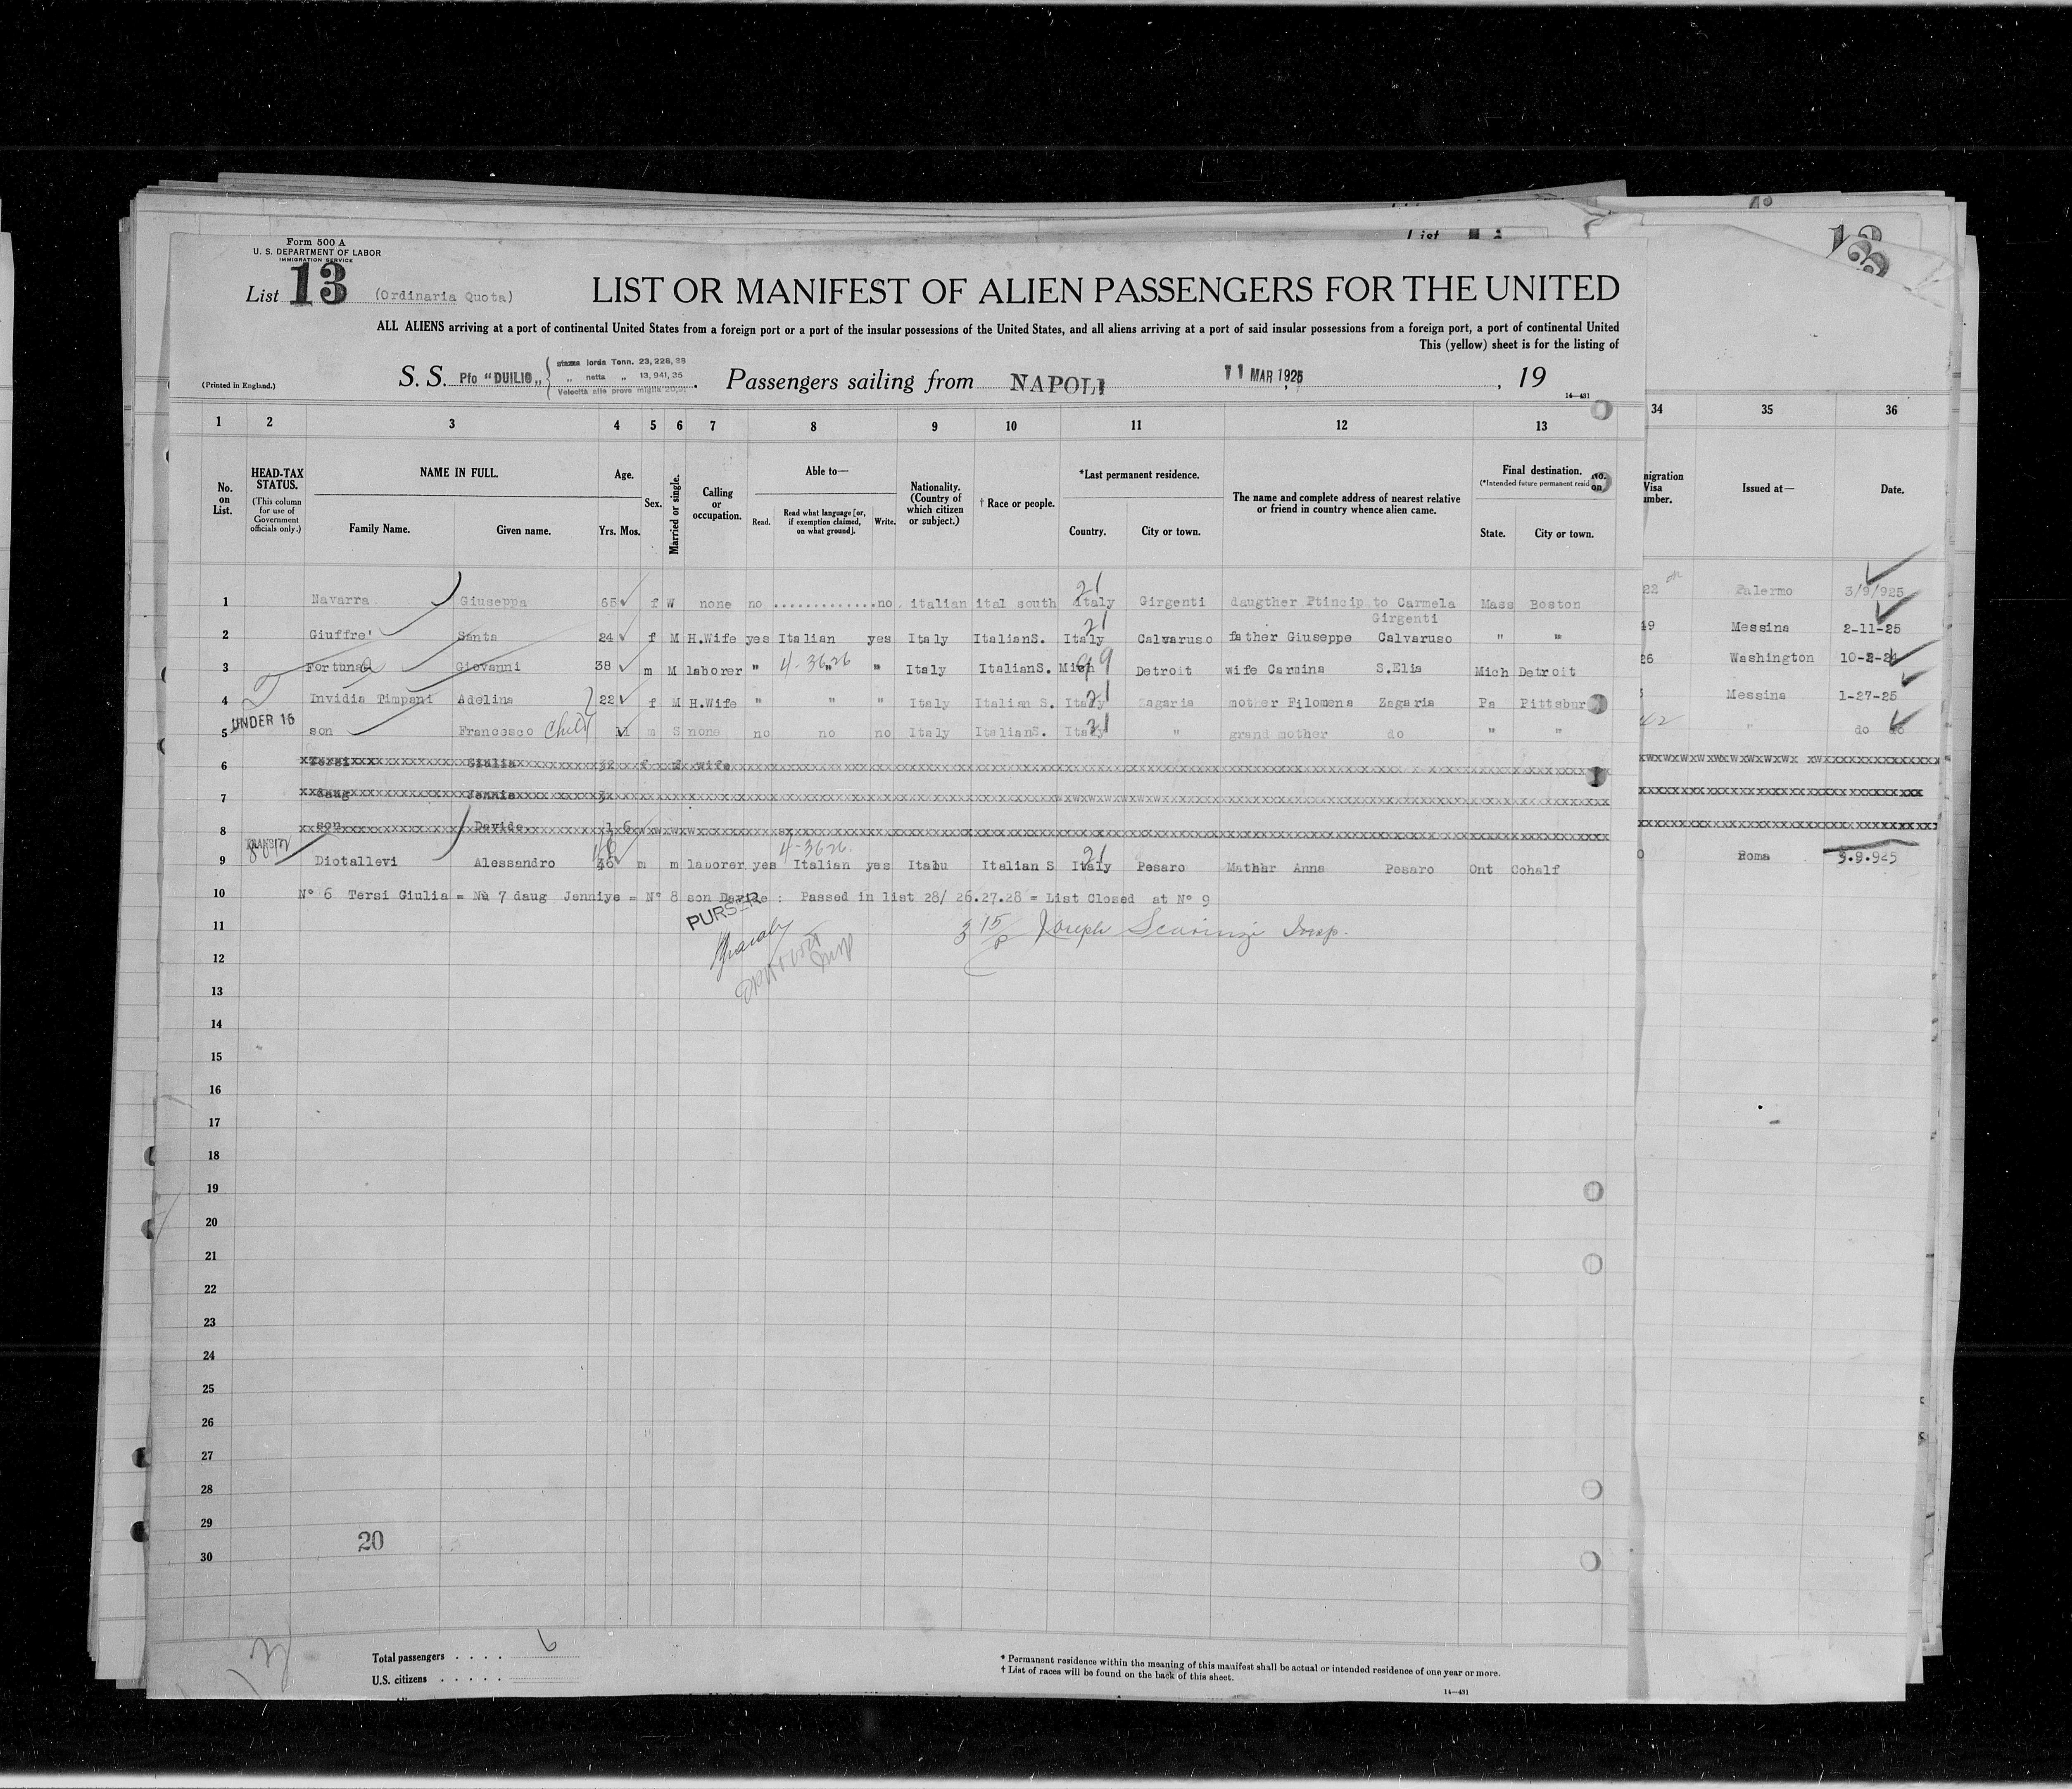 Form 500 A
U. S. DEPARTMENT OF LABOR
IMMIGRATION SERVICE
List 13 (Ordinaria Quota)
LIST OR MANIFEST OF ALIEN PASSENGERS FOR THE UNITED
ALL ALIENS arriving at a port of continental United States from a foreign port or a port of the insular possessions of the United States, and all aliens arriving at a port of said insular possessions from a foreign port, a port of continental United
This (yellow) sheet is for the listing of
(Printed in England.)
S. S. Pfo "DUILIO„ stazza lorda Tonn. 23,228,28
„ netta „ 13,941,35
Velocità alle prove miglia 20,91
Passengers sailing from NAPOLI 11 MAR 1925, 19
14—431
1 2 3 4 5 6 7 8 9 10 11 12 13 34 35 36
No. on List.
HEAD-TAX STATUS.
(This column for use of Government officials only.)
NAME IN FULL.
Family Name. Given name.
Age.
Yrs. Mos.
Sex.
Married or single.
Calling or occupation.
Able to—
Read. Read what language [or, if exemption claimed, on what ground]. Write.
Nationality. (Country of which citizen or subject.)
† Race or people.
*Last permanent residence.
Country. City or town.
The name and complete address of nearest relative or friend in country whence alien came.
Final destination.
(*Intended future permanent resid
State. City or town.
no. on
migration Visa umber.
Issued at—
Date.
1 Navarra Giuseppa 65 f W none no .............. no italian ital south Italy 21 Girgenti daugther Ptincip to Carmela Girgenti Mass Boston 22 Palermo 3/9/925
2 Giuffre' Santa 24 f M H.Wife yes Italian yes Italy ItalianS. Italy 21 Calvaruso father Giuseppe Calvaruso " " 49 Messina 2-11-25
3 Fortuna Giovanni 38 m M laborer " 4-3626 " " Italy ItalianS. Mich Detroit wife Carmina S.Elia Mich Detroit 26 Washington 10-2-24
4 Invidia Timpani Adelina 22 f M H.Wife " " " Italy Italian S. Italy 21 Zagaria mother Filomena Zagaria Pa Pittsbur Messina 1-27-25
UNDER 16
5 son Francesco Child 11 m S none no no no Italy ItalianS. Italy 21 " grand mother do " " " do do
6 Tersi Giulia 32 f m wife
7 daug Jennie 3
8 son Davide. 1 6
TRANSIT
9 Diotallevi Alessandro 46 m m laborer yes 4-3626. Italian yes Italu Italian S Italy 21 Pesaro Mathar Anna Pesaro Ont Cohalf 0 Roma 3.9.925
10 N° 6 Tersi Giulia = Nù 7 daug Jenniye = N° 8 son Davide : Passed in list 28/ 26.27.28 = List Closed at N° 9
PURSER
11 3 15/P Joseph Scaringi Insp.
12
13
14
15
16
17
18
19
20
21
22
23
24
25
26
27
28
29
30
20
Total passengers . . . . 6
U.S. citizens . . . . .
* Permanent residence within the meaning of this manifest shall be actual or intended residence of one year or more.
† List of races will be found on the back of this sheet.
14—431